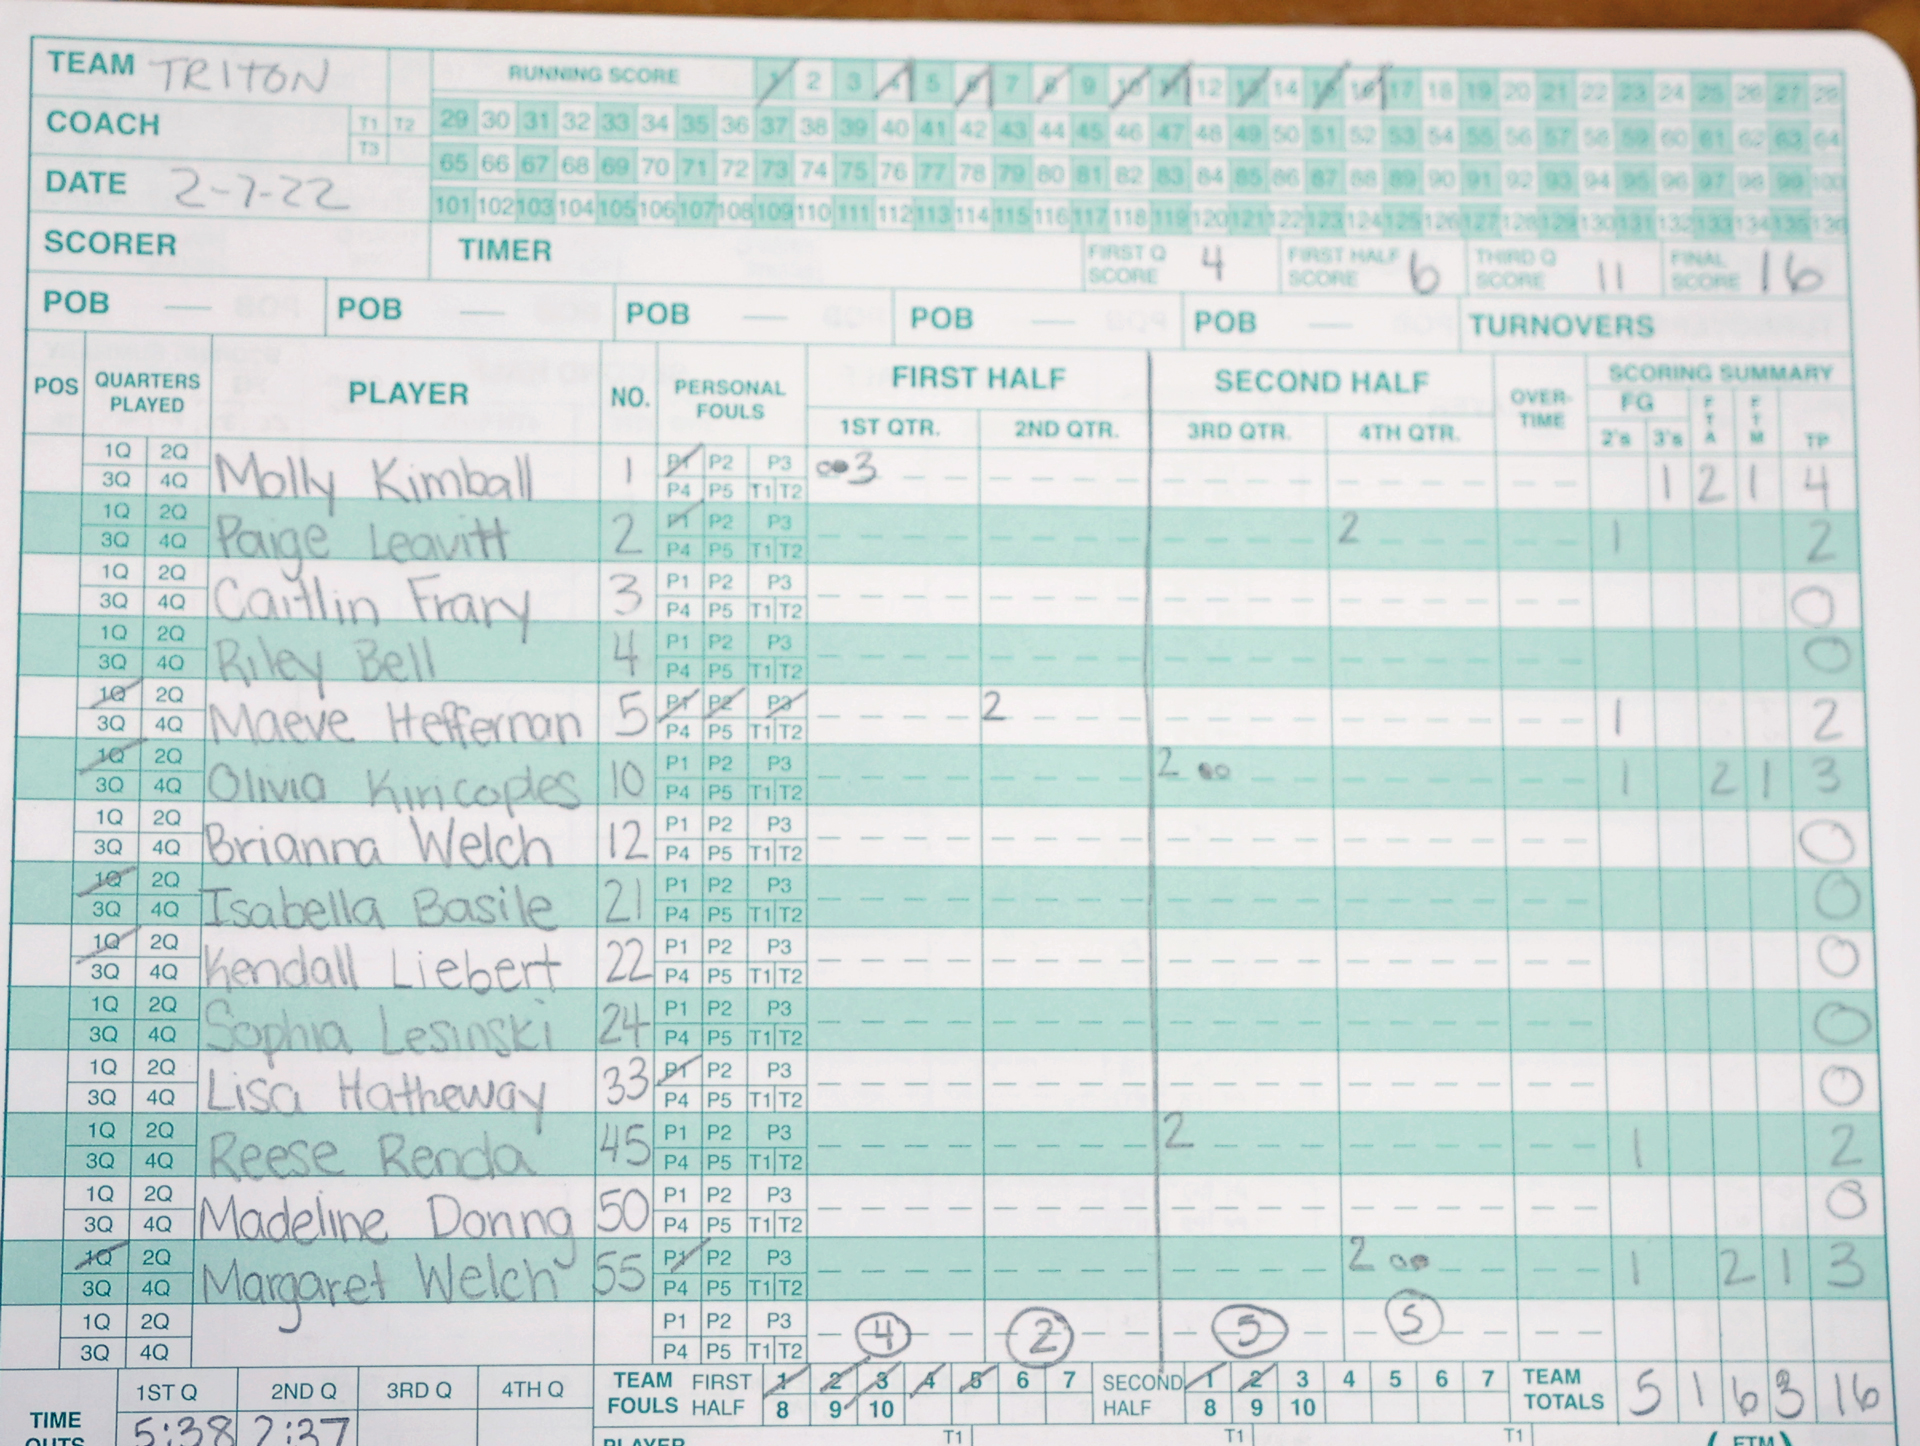 TEAM TRITON RUNNING SCORE 1 2 3 4 5 6 7 8 9 10 11 12 13 14 15 16 17 18 19 20 21 22 23 24 25 26 27 28
COACH T1 T2 T3 29 30 31 32 33 34 35 36 37 38 39 40 41 42 43 44 45 46 47 48 49 50 51 52 53 54 55 56 57 58 59 60 61 62 63 64
DATE 2-7-22 65 66 67 68 69 70 71 72 73 74 75 76 77 78 79 80 81 82 83 84 85 86 87 88 89 90 91 92 93 94 95 96 97 98 99 100
101 102 103 104 105 106 107 108 109 110 111 112 113 114 115 116 117 118 119 120 121 122 123 124 125 126 127 128 129 130 131 132 133 134 135 136
SCORER TIMER FIRST Q SCORE 4 FIRST HALF SCORE 6 THIRD Q SCORE 11 FINAL SCORE 16
POB — POB — POB — POB — POB — TURNOVERS
POS QUARTERS PLAYED PLAYER NO. PERSONAL FOULS FIRST HALF SECOND HALF OVER-TIME SCORING SUMMARY
1ST QTR. 2ND QTR. 3RD QTR. 4TH QTR. FG 2's 3's FTA FTM TP
1Q 2Q 3Q 4Q Molly Kimball 1 P1 P2 P3 P4 P5 T1 T2 3 1 2 1 4
1Q 2Q 3Q 4Q Paige Leavitt 2 P1 P2 P3 P4 P5 T1 T2 2 1 2
1Q 2Q 3Q 4Q Caitlin Frary 3 P1 P2 P3 P4 P5 T1 T2 0
1Q 2Q 3Q 4Q Riley Bell 4 P1 P2 P3 P4 P5 T1 T2 0
1Q 2Q 3Q 4Q Maeve Heffernan 5 P1 P2 P3 P4 P5 T1 T2 2 1 2
1Q 2Q 3Q 4Q Olivia Kiricoples 10 P1 P2 P3 P4 P5 T1 T2 2 1 2 1 3
1Q 2Q 3Q 4Q Brianna Welch 12 P1 P2 P3 P4 P5 T1 T2 0
1Q 2Q 3Q 4Q Isabella Basile 21 P1 P2 P3 P4 P5 T1 T2 0
1Q 2Q 3Q 4Q Kendall Liebert 22 P1 P2 P3 P4 P5 T1 T2 0
1Q 2Q 3Q 4Q Sophia Lesinski 24 P1 P2 P3 P4 P5 T1 T2 0
1Q 2Q 3Q 4Q Lisa Hatheway 33 P1 P2 P3 P4 P5 T1 T2 0
1Q 2Q 3Q 4Q Reese Renda 45 P1 P2 P3 P4 P5 T1 T2 2 1 2
1Q 2Q 3Q 4Q Madeline Donng 50 P1 P2 P3 P4 P5 T1 T2 0
1Q 2Q 3Q 4Q Margaret Welch 55 P1 P2 P3 P4 P5 T1 T2 2 1 2 1 3
1Q 2Q 3Q 4Q P1 P2 P3 P4 P5 T1 T2 4 2 5 5
TIME OUTS 1ST Q 2ND Q 3RD Q 4TH Q TEAM FOULS FIRST HALF 1 2 3 4 5 6 7 8 9 10 SECOND HALF 1 2 3 4 5 6 7 8 9 10 TEAM TOTALS 5 1 6 3 16
5:38 2:37 PLAYER T1 T1 T1 (FTM)